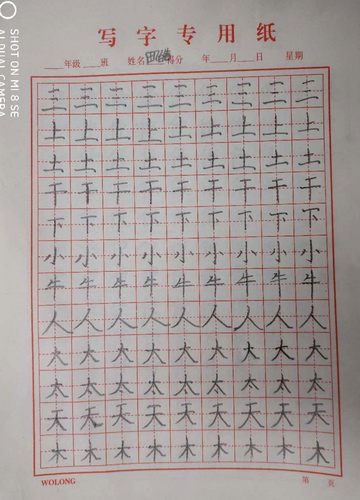 写字专用纸
年级 班 姓名 分 年 月 日 星期
三 三 三 三 三 三 三 三 三
上 上 上 上 上 上 上 上 上
土 土 土 土 土 土 土 土 土
干 干 干 干 干 干 干 干 干
下 下 下 下 下 下 下 下 下
小 小 小 小 小 小 小 小 小
牛 牛 牛 牛 牛 牛 牛 牛 牛
人 人 人 人 人 人 人 人 人
大 大 大 大 大 大 大 大 大
太 太 太 太 太 太 太 太 太
天 天 天 天 天 天 天 天 天
木 木 木 木 木 木 木 木 木
WOLONG 第 页
SHOT ON MI 8 SE
AI DUAL CAMERA